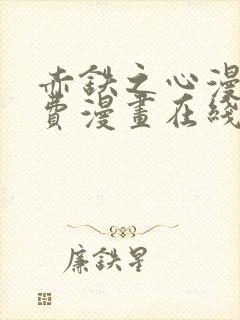 赤鉄之心漫
費漫畫在綫
廉鉄星